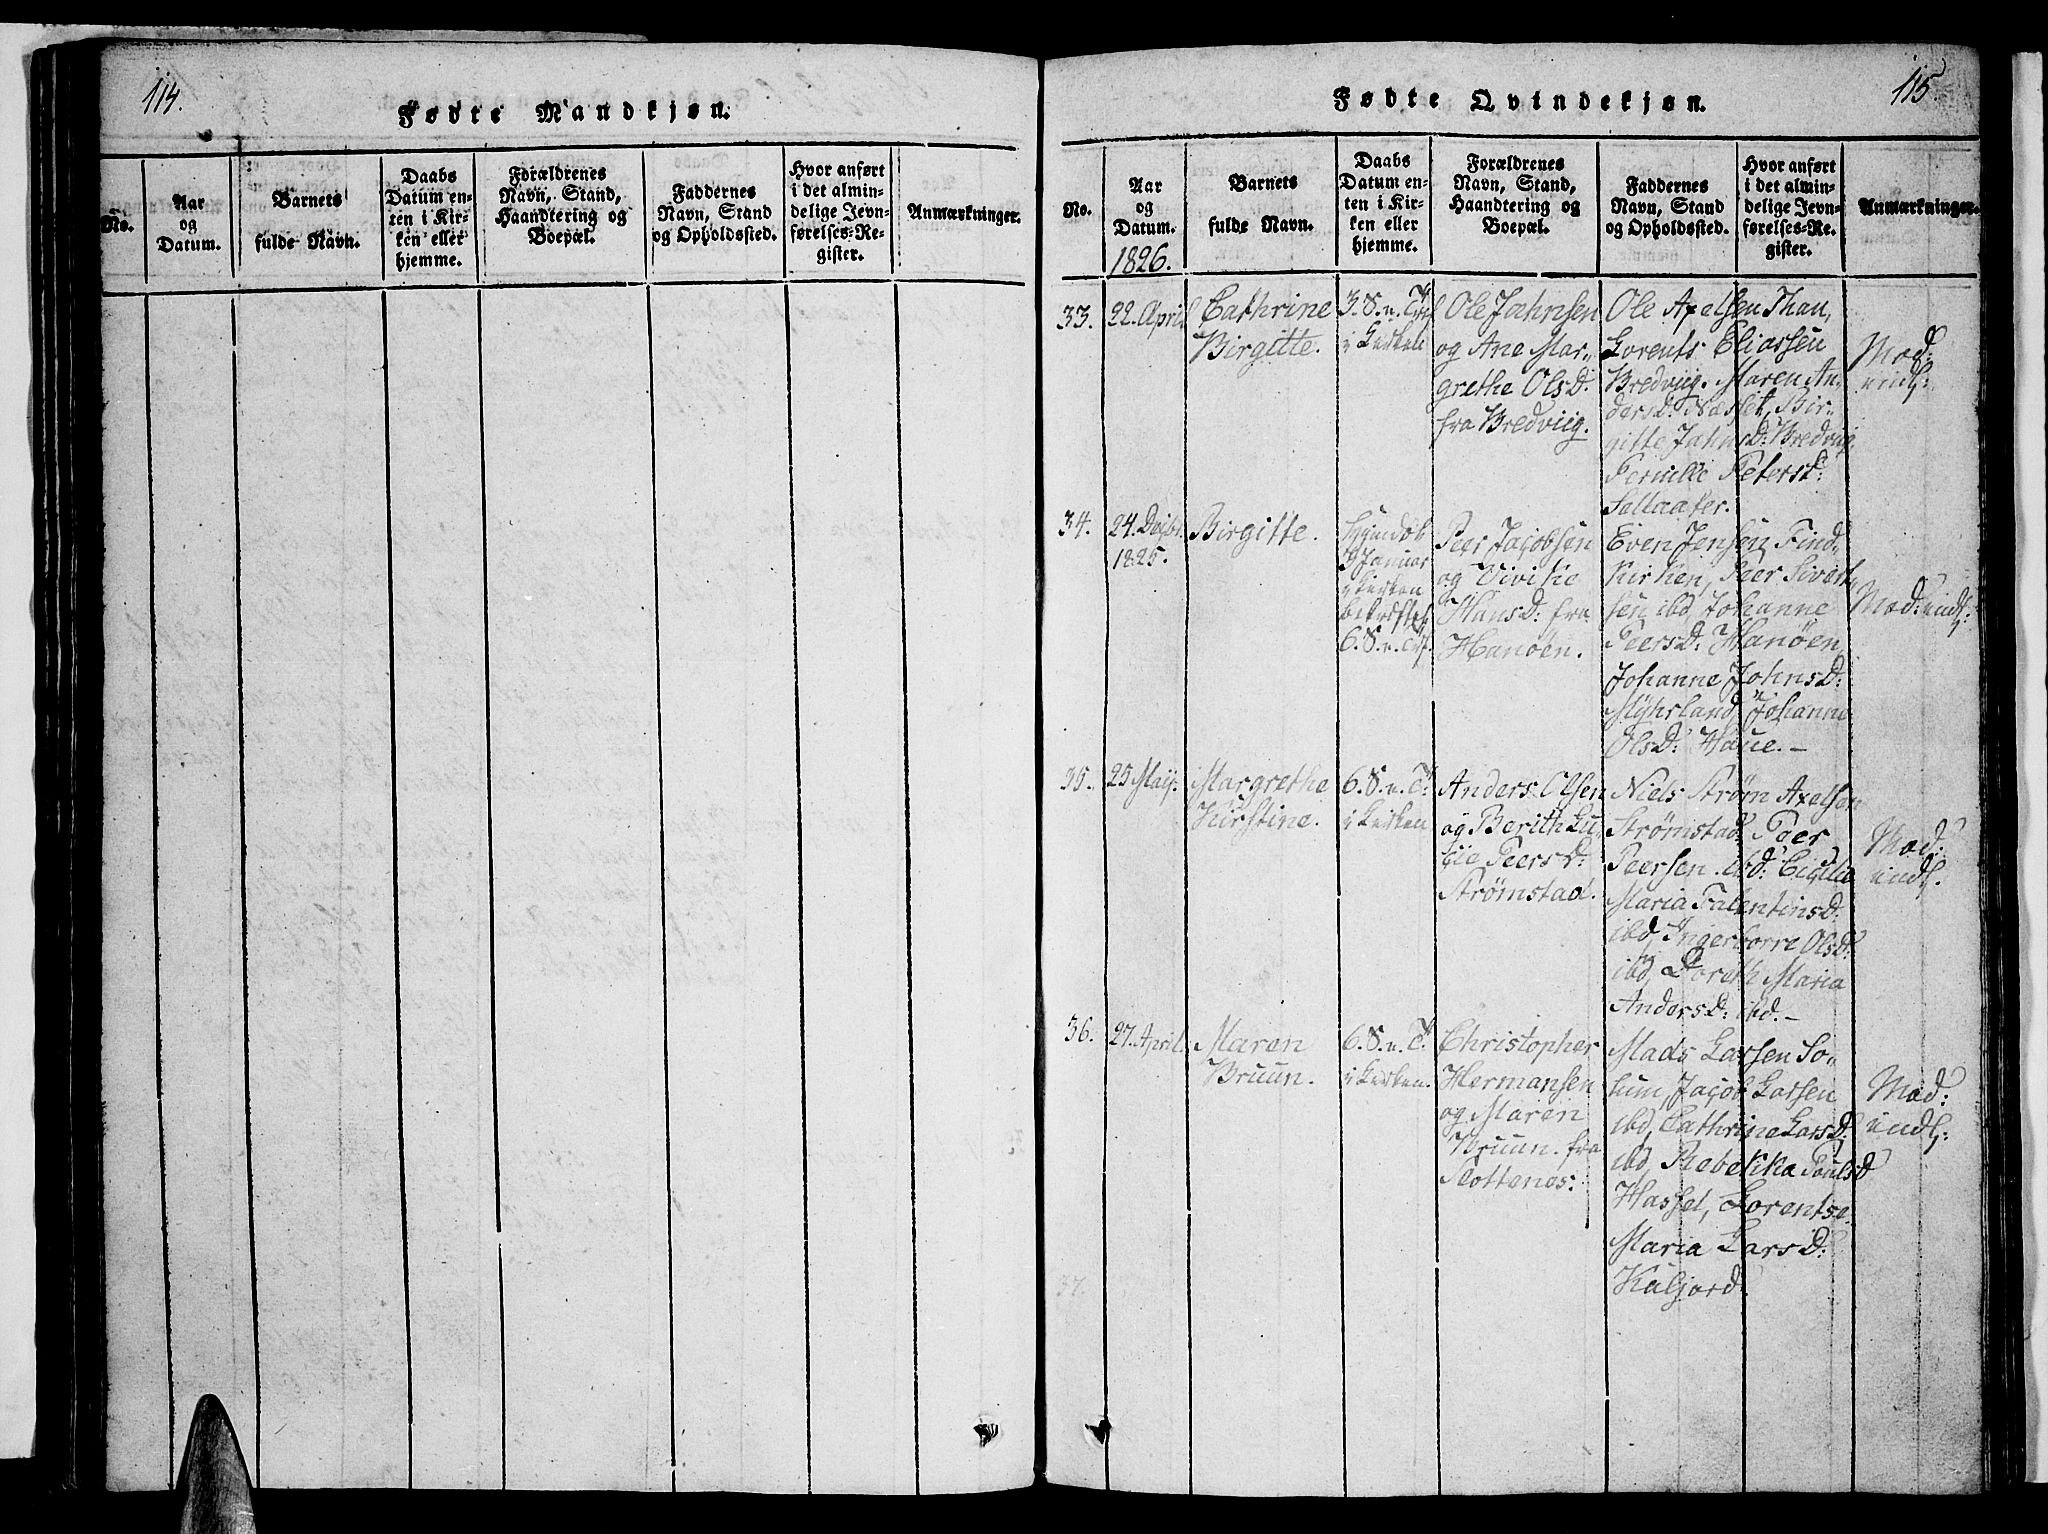 114.
Fødte Mandkjøn.
No.
Aar
og
Datum.
Barnets
fulde Navn.
Daabs
Datum en-
ten i Kir-
ken eller
hjemme.
Forældrenes
Navn, Stand,
Haandtering og
Boepæl.
Faddernes
Navn, Stand
og Opholdssted.
Hvor anført
i det almin-
delige Jevn-
førelses-Re-
gister.
Anmærkninger.
115.
Fødte Qvindekjøn.
No.
Aar
og
Datum.
1826.
Barnets
fulde Navn.
Daabs
Datum en-
ten i Kir-
ken eller
hjemme.
Forældrenes
Navn, Stand,
Haandtering og
Boepæl.
Faddernes
Navn, Stand
og Opholdssted.
Hvor anført
i det almin-
delige Jevn-
førelses-Re-
gister.
Anmærkninger.
33.
22. April
Cathrine
Birgitte.
3. S. n. Trf
i Kirken
Ole Jahnsen
og Ane Mar-
grethe Olsd:
fra Bredviig.
Ole Axelsen Than,
Lorents Eliassen
Bredviig. Maren An-
dersd: Næsset, Bir-
gitte Jahnsd: Bredviig,
Pernille Petersd:
Sellaater.
Mod:
indf:
34.
24. Decbr.
1825.
Birgitte.
Januar
i Kirken
bekræftet
6. S. n. Trf.
Peer Jacobsen
og Vivikie
Hansd: fra
Hanøen.
Even Jensen Find-
Kirken, Peer Sivert-
sen ibd, Johanne
Peersd: Hanøen,
Johanne Johnsd:
Myhrland, Johanne
Olsd: Haue. –
Mod: indf:
35.
25 Maij.
Margrethe
Kirstine.
6. S. n. Tr
i Kirken
Anders Olsen
og Berith Lu-
cie Peersd:
Strømstad.
Niels Strøm Axelsen
Strømstad, Peer
Peersen. ibd: Cicilie
Maria Falentinsd:
ibd, Ingerborre Olsd:
ibd, Doreth Maria
Andersd: ibd. –
Mod:
indf.
36.
27. April.
Maren
Bruun.
6. S. n. Tr
i Kirken.
Christopher
Hermansen
og Maren
Bruun. fra
Slottenes:
Mads Larsen So-
lum, Jacob Larsen
ibd, Cathrine Larsd:
ibd, Rebekka Poulsd
Hassel, Lorentse
Maria Larsd:
Kaljord.
Mod:
indf:
37.